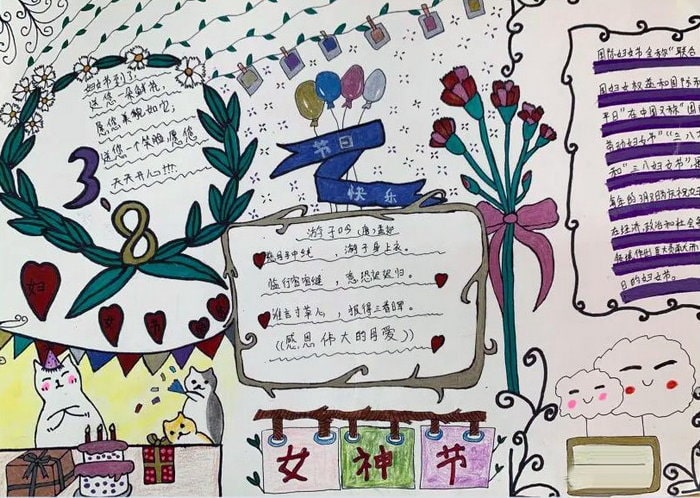 妇女节到了,
送您一朵鲜花,
愿您美貌如它;
送您一个笑脸愿您
天天开心!!!
3.8
妇
女
节
快
乐
节日
快乐
游子吟(唐)孟郊
慈母手中线,游子身上衣。
临行密密缝,意恐迟迟归。
谁言寸草心,报得三春晖。
((感恩伟大的母爱))
女神节
国际妇女节全称“联合
国妇女权益和国际和
平日”在中国又称“国际
劳动妇女节”“三八
和“三八妇女节”,
每年的3月8日为庆祝妇女
在经济、政治和社会等
日的妇女节。